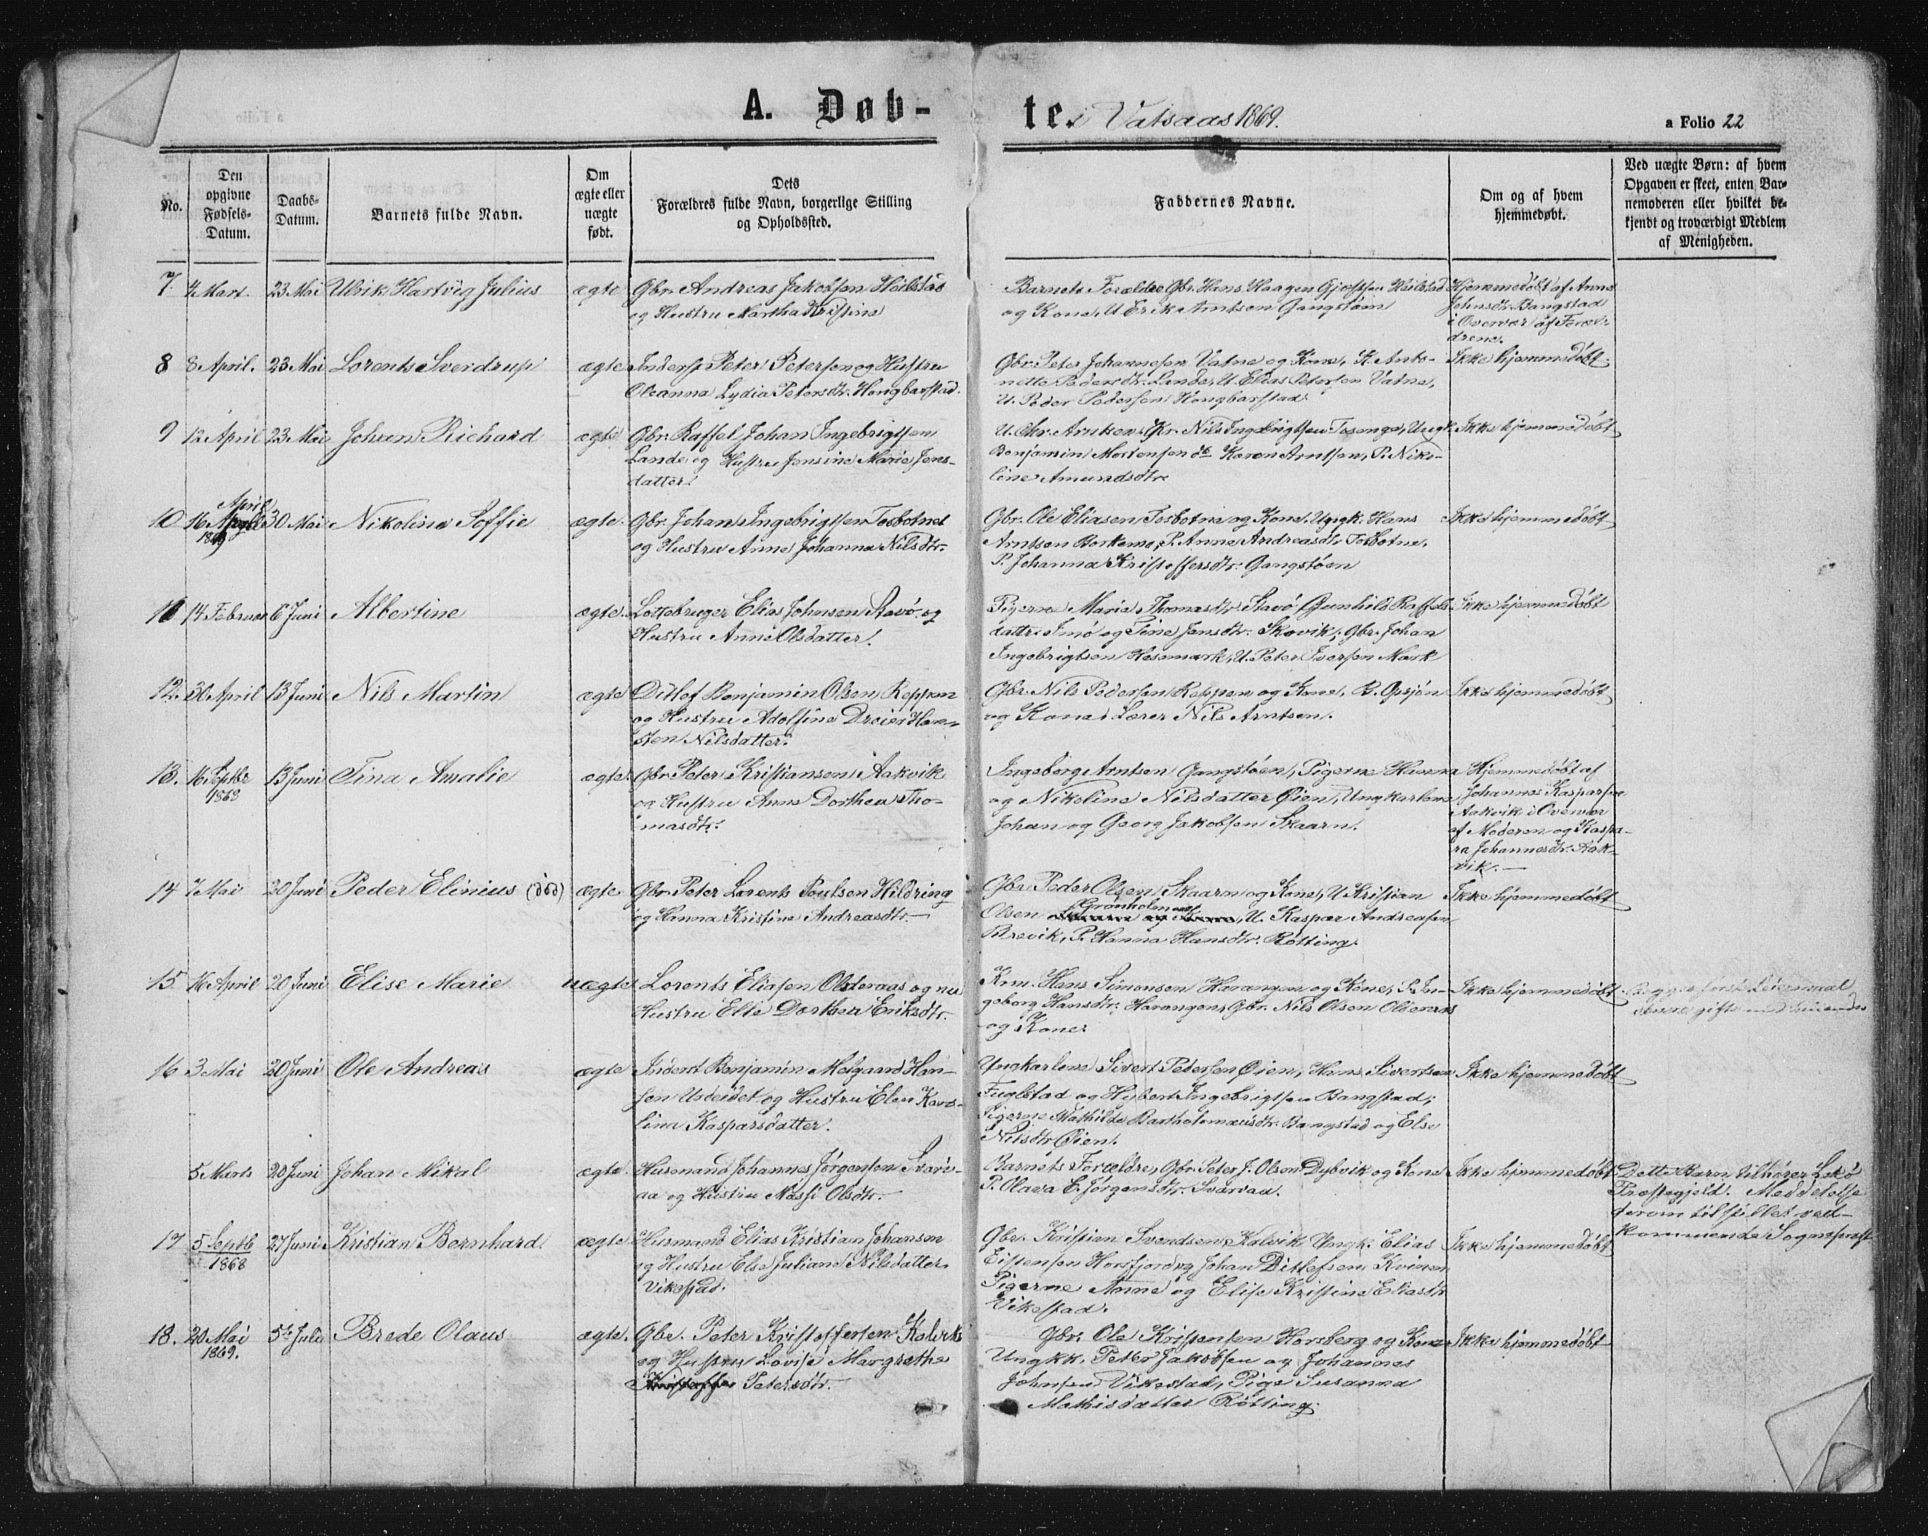 A. Døb-
te i Vatsaas 1869.
a Folio 22
No.
Den opgivne Fødsels-Datum.
Daabs-Datum.
Barnets fulde Navn.
Om ægte eller uægte født.
Dets
Forældres fulde Navn, borgerlige Stilling
og Opholdssted.
Faddernes Navne.
Om og af hvem
hjemmedøbt.
Ved uægte Børn: af hvem
Opgaven er skeet, enten Bar-
nemoderen eller hvilket be-
kjendt og troværdigt Medlem
af Menigheden.
7 4 Mart. 23 Mai Ulrik Hartvig Julius ægte Gbr. Andreas Jakobsen Heilstad
og Hustru Martha Kristine
Barnets Forældre, Gbr. Hans Haagen Heilstad
og Kone, U. Erik Arntsen Gangstøen
Hjemmedøbt af Anne
Johnsdtr. Bangstad
i Overvær af Foræl-
drene.
8 8 April. 23 Mai Lorents Sverdrup ægte Peter Petersen og Hustru
Oleanna Lydia Petersdtr. Hongbarstad.
Gbr. Peter Johannesen Vatne og Kone, P. Anto-
nette Pedersdtr. Lande, U. Elias Petersen Vatne,
U. Peder Pedersen Hongbarstad.
Ikke hjemmedøbt
9 12 April 23 Mai Johsen Richard ægte Gbr. Raffel Johan Ingebrigtsen
Lande og Hustru Jensine Marie Jens-
datter.
U. Chr. Nils Ingebrigtsen Tosenge, Ungk.
Benjamin Mortensen do Karen Arntsen, P. Niko-
line Amundsdtr.
Ikke hjemmedøbt
10 16 April 1869 30 Mai Nikolina Soffie ægte. Gbr. Johan Ingebrigtsen Tosbotnet
og Hustru Anne Johanna Nilsdtr.
Gbr. Ole Eliasen Tosbotne og Kone, Ungk. Hans
Arntsen Borkemo, P. Anne Andreasdtr. Tosbotne,
P. Johanna Kristoffersdtr. Gangstøen
Ikke hjemmedøbt
11 14 Februar 6 Juni Albertine ægte. Elias Johnsen Stavø og
Hustru Anne Olsdatter.
Pigerne Marie Thomasdtr. Stavø Gunhild Raffels-
datter Imø og Tine Jensdtr. Skavik, Gbr. Johan
Ingebrigtsen Hesemark, U. Peter Iversen Mark
Ikke hjemmedøbt
12. 30 April 13 Juni Nils Martin ægte Ditlef Benjamin Olsen Reppen
og Hustru Adolfine Dreier Han-
sten Nilsdatter.
Gbr. Nils Pedersen Reppen og Kone, B. Opsjøn
og Kone, Lærer Nils Arntsen.
Ikke hjemmedøbt
13. 16 Septbr 1868 13 Juni Tina Amalie ægte. Gbr. Peter Kristiansen Aakvik
og Hustru Anne Dorthea Tho-
masdtr.
Ingeborg Arntsen Gangstøen, Pigerne
og Nikoline Nilsdatter Øien, Ungkarlene
Johan og Georg Jakobsen Skaarn.
Hjemmedøbt af
Johannes Kasparsen
Aakvik i Overvær
af Moderen og Kaspa-
ra Johannesdtr. Aak-
vik.
14 7 Mai 20 Juni Peder Elinius (død) ægte. Gbr. Peter Lorents Poulsen Hildring
og Hanna Kristine Andreasdtr.
Gbr. Peder Olsen Skaarn og Kone, U. Kristian
Olsen Grønholmen, U. Kaspar Andreasen
Brevik, P. Hanna Hansdtr. Røtting.
Ikke hjemmedøbt
15 16 April 20 Juni Elise Marie uægte Lorents Eliasen Olderaas og nu
Hustru Else Dorthea Eriksdtr.
Hans Simonsen Harangen og Kone, P. In-
geborg Hansdtr. Harangen, Gbr. Nils Olsen Olderaas
og Kone.
Ikke hjemmedøbt
16 3 Mai 20 Juni Ole Andreas ægte Benjamin Melgaard Han-
sen og Hustru Elen Karo-
lina Kasparsdatter.
Ungkarlene Sivert Pedersen Øien, Hans Sivertsen
Fuglstad og Hybert Ingebrigtsen Bangstad,
Pigerne Mathilde Bartholomæusdtr. Bangstad og Else
Nilsdtr. Øien.
Ikke hjemmedøbt
5 Marts 20 Juni Johan Mikal ægte. Husmand Johannes Jørgensen Svare-
aa og Hustru Massi Olsdtr.
Barnets Forældre, Gbr. Peter J. Olsen Dybvik og Kone
P. Olava E. Jørgensdtr. Svaraa.
Ikke hjemmedøbt
Dette Barn tilhører Lekø
Præstegjeld. Meddelelse
derom tilstillet ved-
kommende Sognepræst
17 5 Septb 1868 27 Juni Kristian Bernhard ægte Husmand Elias Kristian Johansen
og Hustru Else Juliane Nilsdatter
Vikestad.
Gbr. Kristian Svendsen Kalvik Ungk. Elias
Eistensen Horsfjord og Johan Ditlefsen Kvinen
Pigerne Anne og Elise Kristine Eliasdtr
Vikestad.
Ikke hjemmedøbt
18. 20 Mai 1869. 5te Juli Brede Olaus ægte. Gbr. Peter Kristoffersen Kalvik
og Hustru Lovise Margrethe
Petersdtr.
Gbr. Ole Kristensen Horsberg og Kone
Ungkk. Peter Jakobsen og Johannes
Johnsen Vikestad, Pige Susanna
Mathisdatter Røtting.
Ikke hjemmedøbt